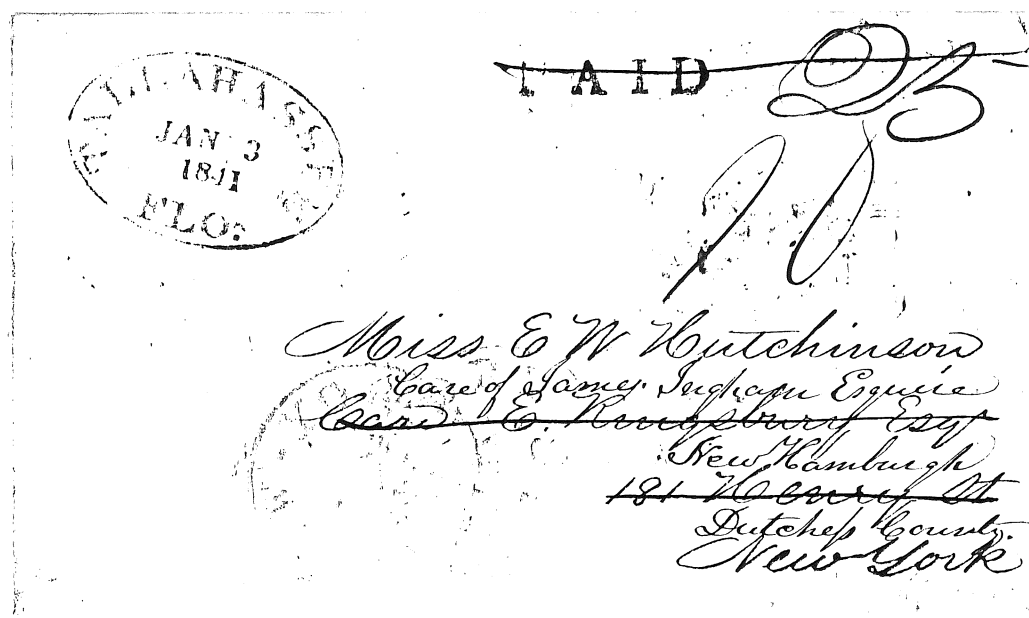 TALLAHASSEE
JAN 3
1841
FLO:
PAID 25
10
Miss E W Hutchinson
Care of James Ingham Esquire
Care E. Kingsbury Esqr
New Hamburgh
181 Henry St
Dutchess County.
New York